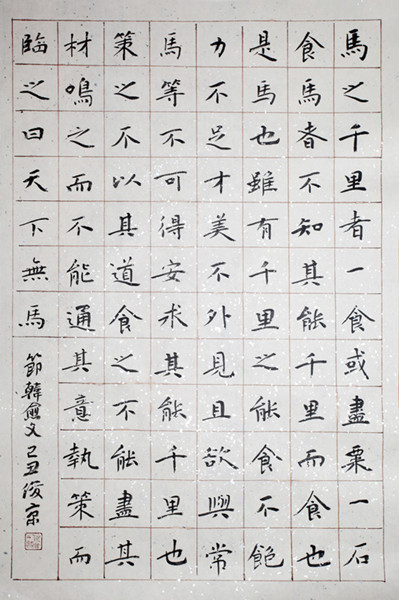 馬之千里者一食或盡粟一石
食馬者不知其能千里而食也
是馬也雖有千里之能食不飽
力不足才美不外見且欲與常
馬等不可得安求其能千里也
策之不以其道食之不能盡其
材鳴之而不能通其意執策而
臨之曰天下無馬
節韓愈文己丑京